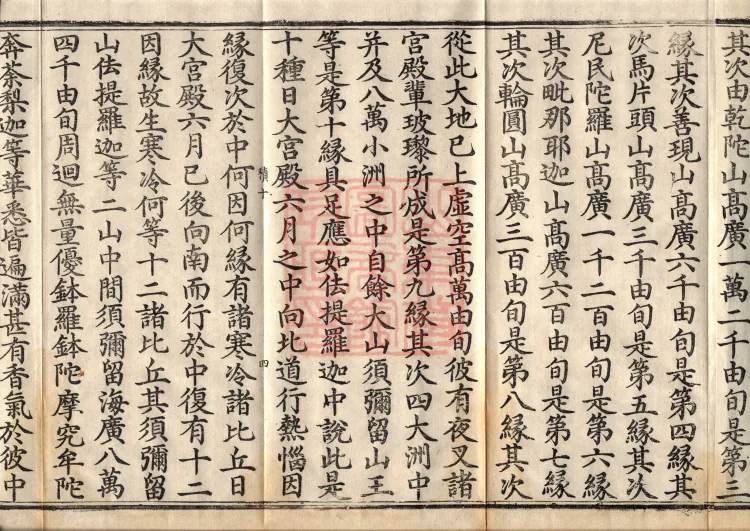 其次由乾陀山高廣一萬二千由旬是第三
縁其次善現山高廣六千由旬是第四縁其
次馬片頭山高廣三千由旬是第五縁其次
尼民陀羅山高廣一千二百由旬是第六縁
其次毗那耶迦山高廣六百由旬是第七縁
其次輪圓山高廣三百由旬是第八縁其次
從此大地已上虛空高萬由旬彼有夜叉諸
宮殿輩玻瓈所成是第九縁其次四大洲中
并及八萬小洲之中自餘大山須彌留山王
等是第十縁具足應如佉提羅迦中說此是
十種日大宮殿六月之中向北道行熱惱因
積十 四
縁復次於中何因何縁有諸寒冷諸比丘日
大宮殿六月已後向南而行於中復有十二
因縁故生寒冷何等十二諸比丘其須彌留
山佉提羅迦等二山中間須彌留海廣八萬
四千由旬周迴無量優鉢羅鉢陀摩究牟陀
奔荼梨迦等華悉皆遍滿甚有香氣於彼中